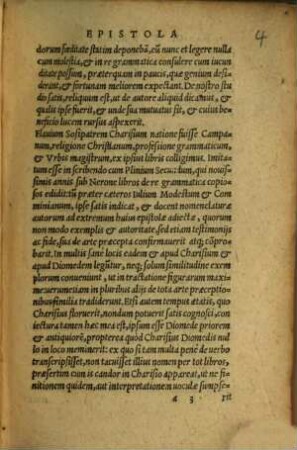 EPISTOLA
4
dorum fœditate statim deponebā, eū nunc et legere nulla
cum molestia, & in re grammatica consulere cum iucun
ditate possum, præterquam in paucis, quæ genium deside
rant, & fortunam meliorem expectant. De nostro stu
dio satis, reliquum est, ut de autore aliquid dicamus, &
qualis ipse fuerit, & unde sua mutuatus sit, & cuius be=
neficio lucem rursus aspexerit.
Flauium Sosipatrem Charisium natione fuisse Campa
num, religione Christianum, professione grammaticum,
& Vrbis magistrum, ex ipsius libris colligimus. Imita=
tum esse in scribendo cum Plinium Secundum, qui nouis=
simis annis sub Nerone libros de re grammatica copio
sos edidit: tū præter cæteros Iulium Modestum & Com
minianum, ipse satis indicat, & docent nomenclaturæ
autorum ad extremum huius epistolæ adiectæ, quorum
non modo exemplis & autoritate, sed etiam testimonijs
ac fide, sua de arte præcepta confirmauerit atq; cōpro=
barit. In multis sane locis eadem & apud Charisium &
apud Diomedem legūtur, neq; solum similitudine exem
plorum conueniunt, ut in tractatione figurarum maxi=
me: uerumetiam in pluribus alijs de tota arte præceptio=
nibus similia tradiderunt. Etsi autem tempus ætatis, quo
Charisius floruerit, nondum potuerit satis cognosci, con
iectura tamen hæc mea est, ipsum esse Diomede priorem
& antiquiorē, propterea quod Charisius Diomedis nul
lo in loco meminerit: ex quo si tam multa penè de uerbo
transcripsisset, non tacuisset illius nomen per tot libros,
præsertim cum is candor in Charisio appareat, ut ne fi=
nitionem quidem, aut interpretationem uoculæ sumpse=
a 3 rit